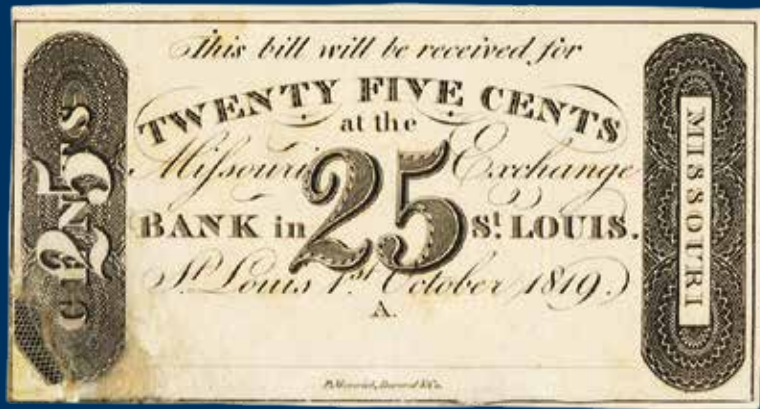 This bill will be received for
TWENTY FIVE CENTS
at the
Miſsouri Exchange
25
BANK in St. LOUIS.
St Louis 1st October 1819.
A.
CENTS
25
MISSOURI